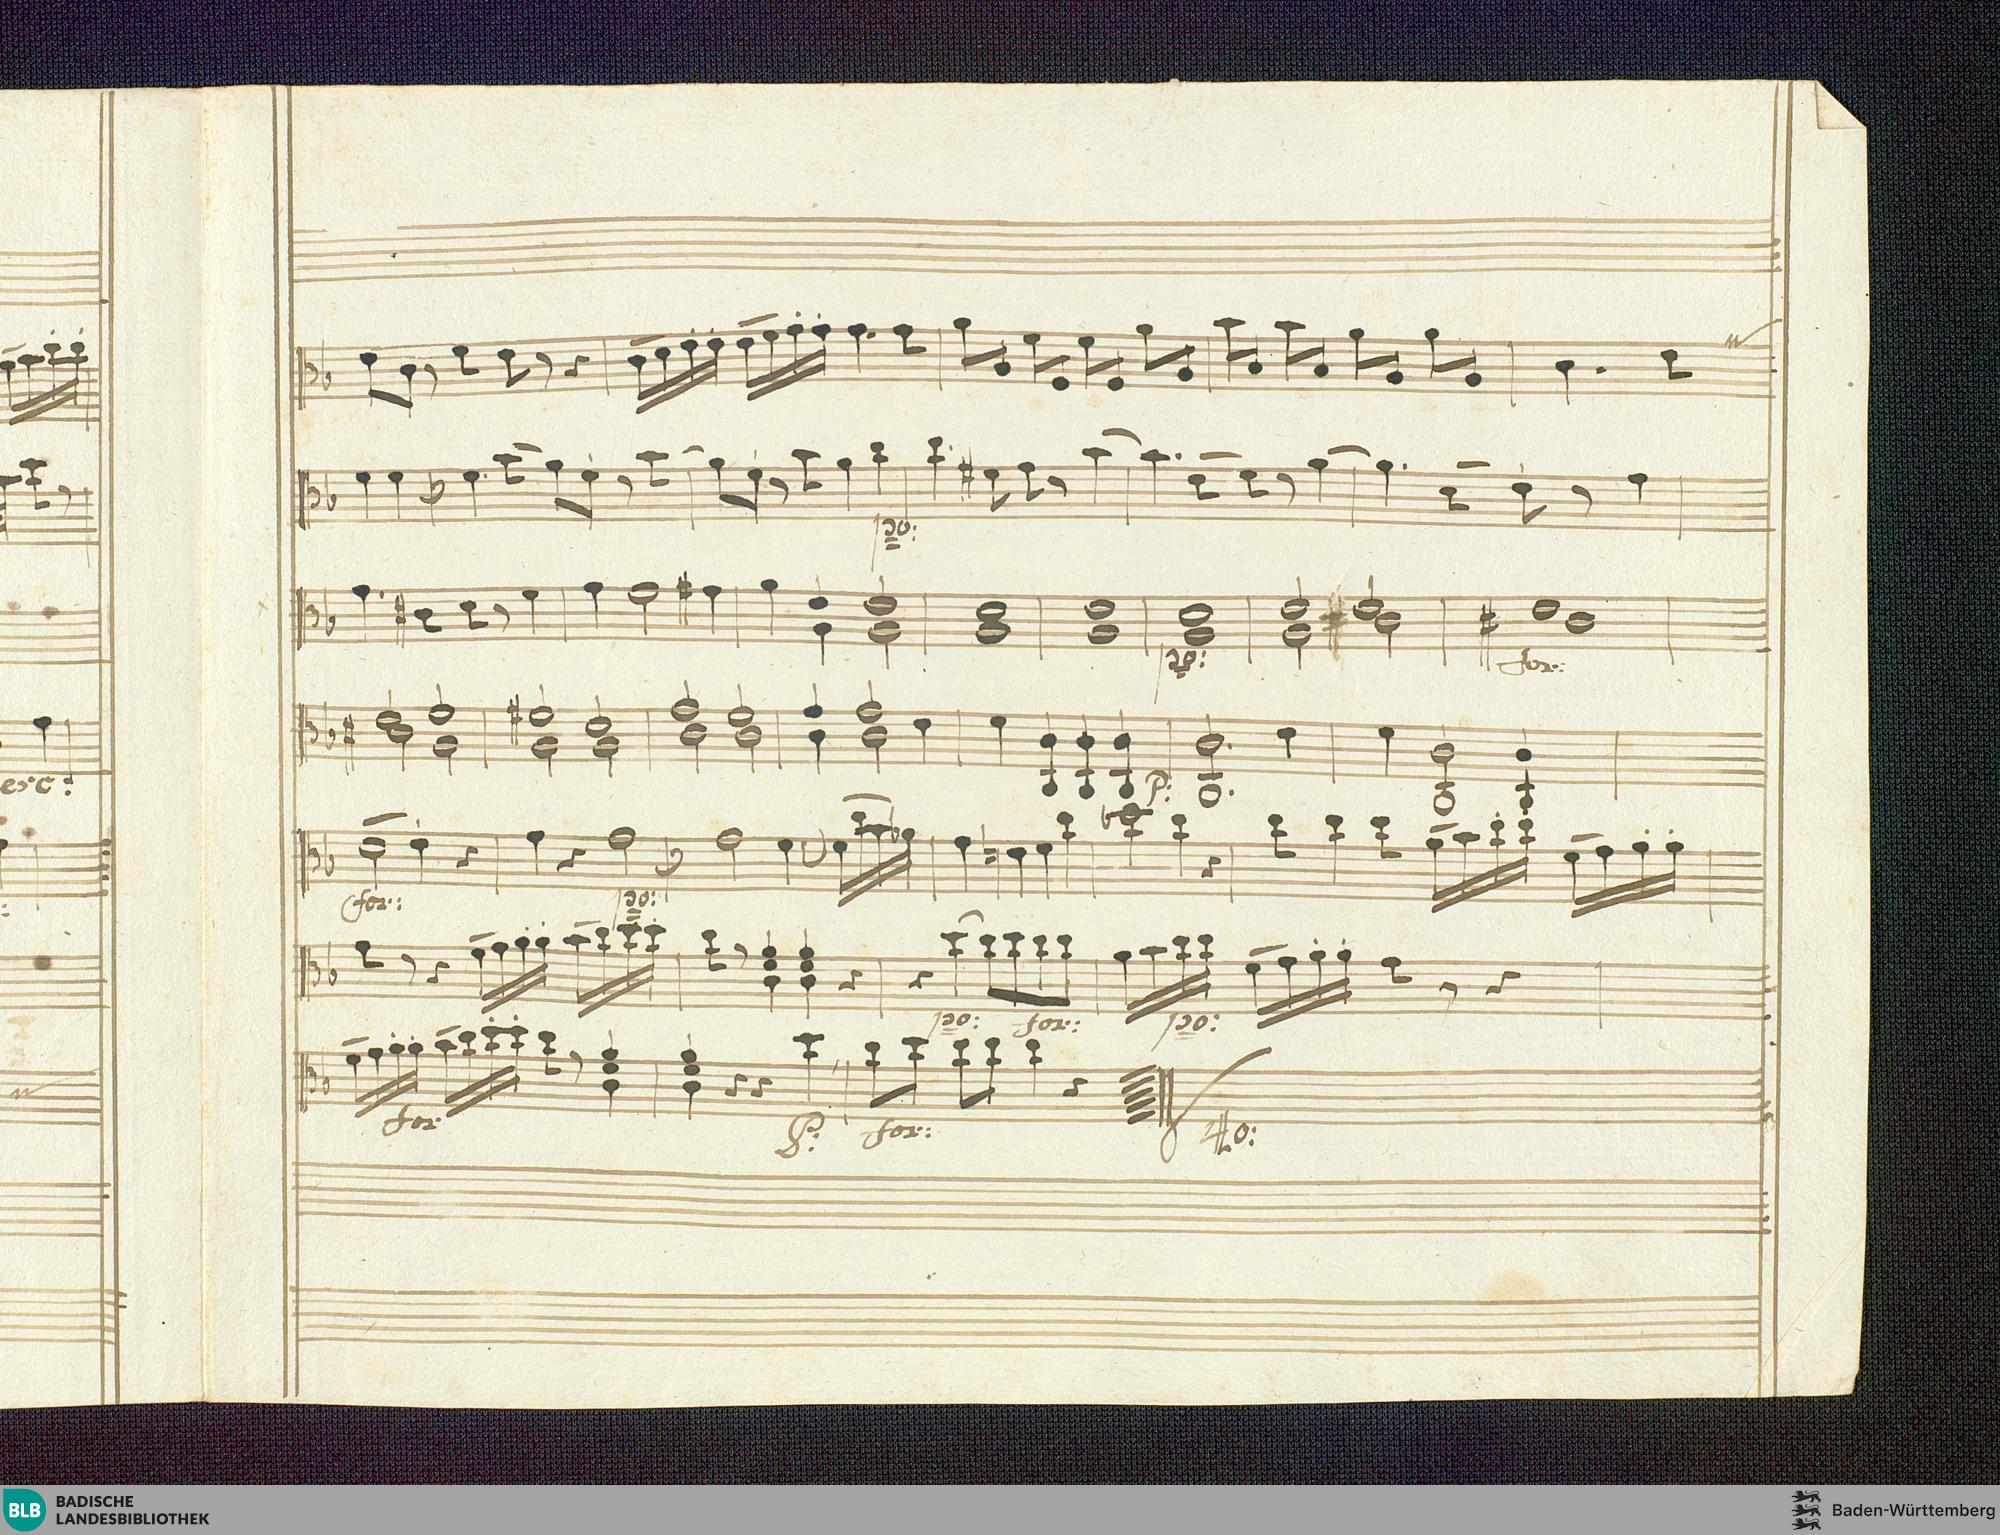 po:
po:
for:
erc:
P:
for:
po:
po:
for:
po:
for
P:
for:
BLB
BADISCHE
LANDESBIBLIOTHEK
Baden-Württemberg